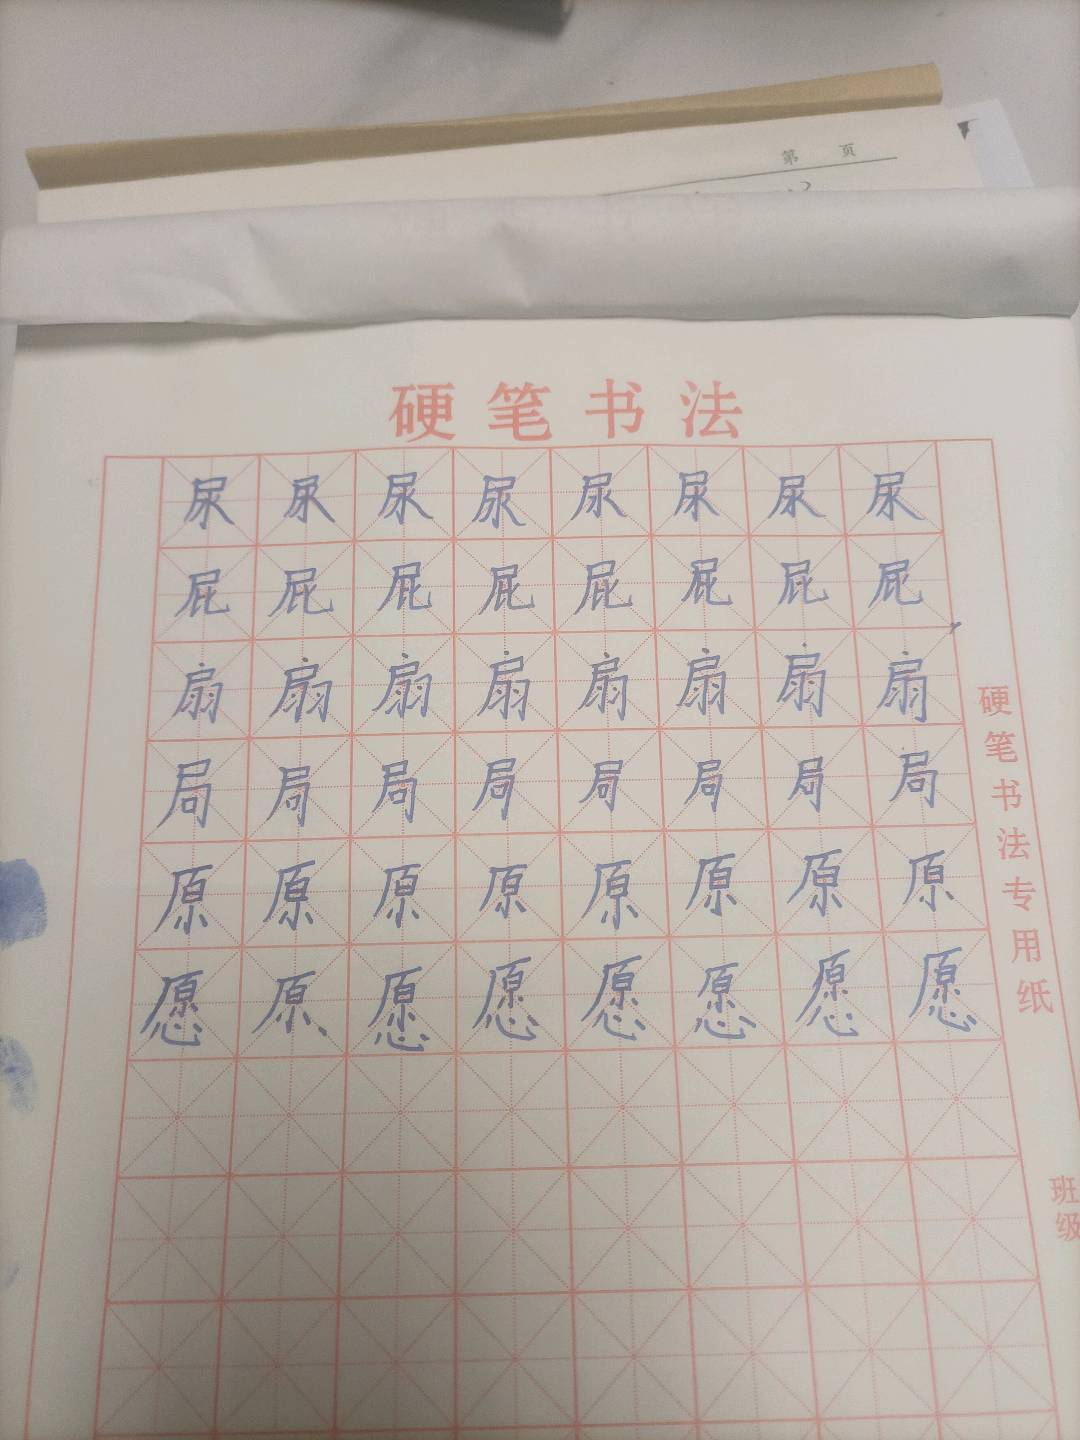 第 页
硬笔书法
尿尿尿尿尿尿尿尿
屁屁屁屁屁屁屁屁
扇扇扇扇扇扇扇扇
局局局局局局局局
原原原原原原原原
愿原愿愿愿愿愿愿
硬笔书法专用纸
班级